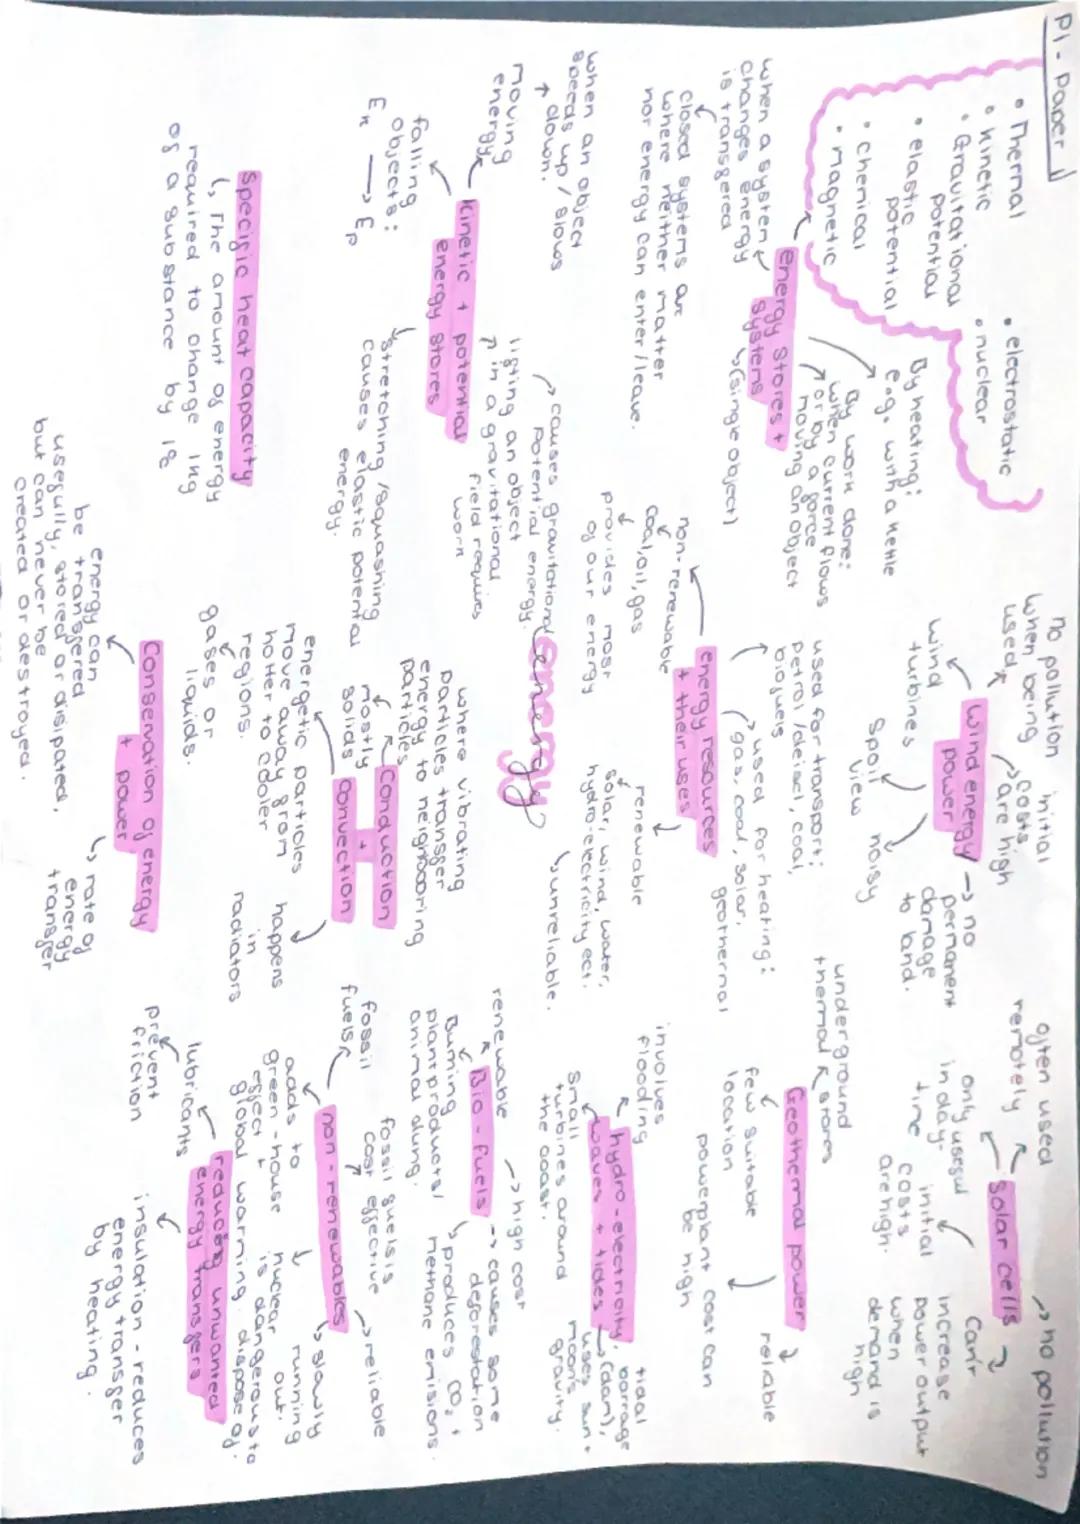 P1 - Paper 1
• Thermal
• Kinetic
• Gravitational
potential
• elastic
potential
• chemical
• magnetic
• electrostatic
• nuclear
energy stores +
systems
↳ (single object)
when a system
changes energy
is transfered
closed systems are
where neither matter
nor energy can enter/leave.
By heating:
e.g. with a kettle
By work done:
when current flows
or by a force
moving an object
kinetic + potential
energy stores
when an object
speeds up / slows
down.
moving
energy
falling
objects:
Ek → Ep
causes gravitational
potential energy.
lifting an object
in a gravitational
field requires
work
stretching / squashing
causes elastic potential
energy.
Specific heat capacity
↳ The amount of energy
required to change 1kg
of a substance by 1°c
energy
energy resources
+ their uses
non-renewable
coal, oil, gas
provides most
of our energy
used for transport:
petrol / deisel, coal,
biofuels
used for heating:
gas, coal, solar,
geothermal
renewable
solar, wind, water,
hydro-electricity ect.
↳ unreliable.
wind energy
power
no pollution
when being
used
initial
costs
are high
→ no
permanent
damage
to land.
wind
turbines
spoil
view
noisy
Solar cells
→ no pollution
often used
remotely
only useful
in day-
time
initial
costs
are high.
Can't
increase
power output
when
demand is
high
Geothermal power
underground
thermal stores
few suitable
location
powerplant cost can
be high
reliable
hydro-electricity,
waves + tides
involves
flooding
small
turbines around
the coast.
tidal
barrage
→ (dam),
uses sun +
moon's
gravity.
Bio-fuels
renewable
→ high cost
→ causes some
deforestation
Burning
plant products/
animal dung.
↳ produces CO2 +
methane emisions.
Conduction
+
Convection
where vibrating
particles transfer
energy to neighbooring
particles
mostly
solids
energetic particles
move away from
hotter to cooler
regions.
gases or
liquids.
happens
in
radiators
non-renewables
fossil
fuels
fossil fuels is
cost effective
→ reliable
↳ slowly
running
out.
adds to
green-house
effect +
global warming.
nuclear
is dangerous to
dispose of.
Conservation of energy
+ power
energy can
be transfered
usefully, stored or disipated,
but can never be
created or destroyed.
↳ rate of
energy
transfer
reducing unwanted
energy transfers
lubricants
prevent
friction
insulation - reduces
energy transfer
by heating.